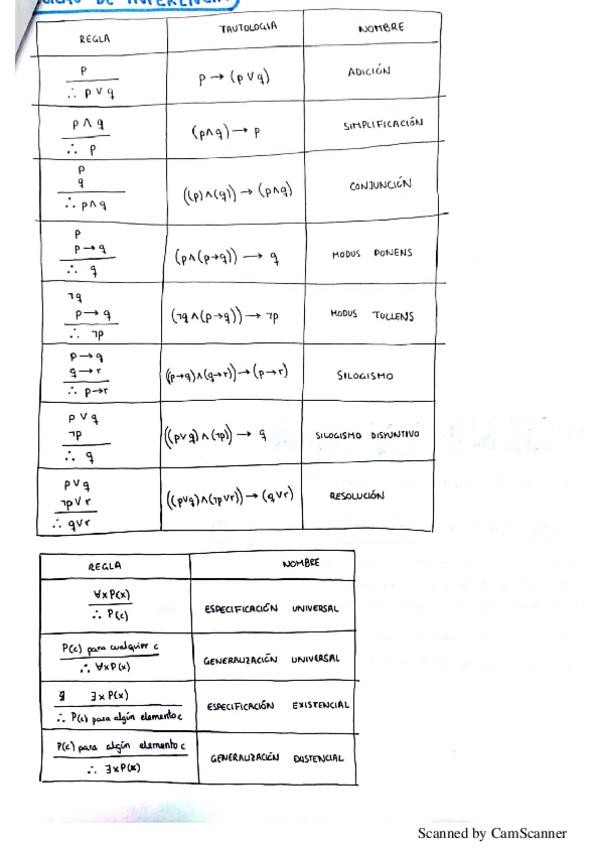 DE INFERENCIA
REGLA TAUTOLOGIA NOMBRE
p
∴ p ∨ q
p → (p ∨ q)
ADICIÓN
p ∧ q
∴ p
(p∧q) → p
SIMPLIFICACIÓN
p
q
∴ p∧q
((p)∧(q)) → (p∧q)
CONJUNCIÓN
p
p → q
∴ q
(p∧(p→q)) → q
MODUS PONENS
¬q
p → q
∴ ¬p
(¬q∧(p→q)) → ¬p
MODUS TOLLENS
p → q
q → r
∴ p→r
((p→q)∧(q→r)) → (p→r)
SILOGISMO
p ∨ q
¬p
∴ q
((p∨q)∧(¬p)) → q
SILOGISMO DISYUNTIVO
p∨q
¬p∨r
∴ q∨r
((p∨q)∧(¬p∨r)) → (q∨r)
RESOLUCIÓN
REGLA NOMBRE
∀x P(x)
∴ P(c)
ESPECIFICACIÓN UNIVERSAL
P(c) para cualquier c
∴ ∀x P(x)
GENERALIZACIÓN UNIVERSAL
∃x P(x)
∴ P(c) para algún elemento c
ESPECIFICACIÓN EXISTENCIAL
P(c) para algún elemento c
∴ ∃x P(x)
GENERALIZACIÓN EXISTENCIAL
Scanned by CamScanner